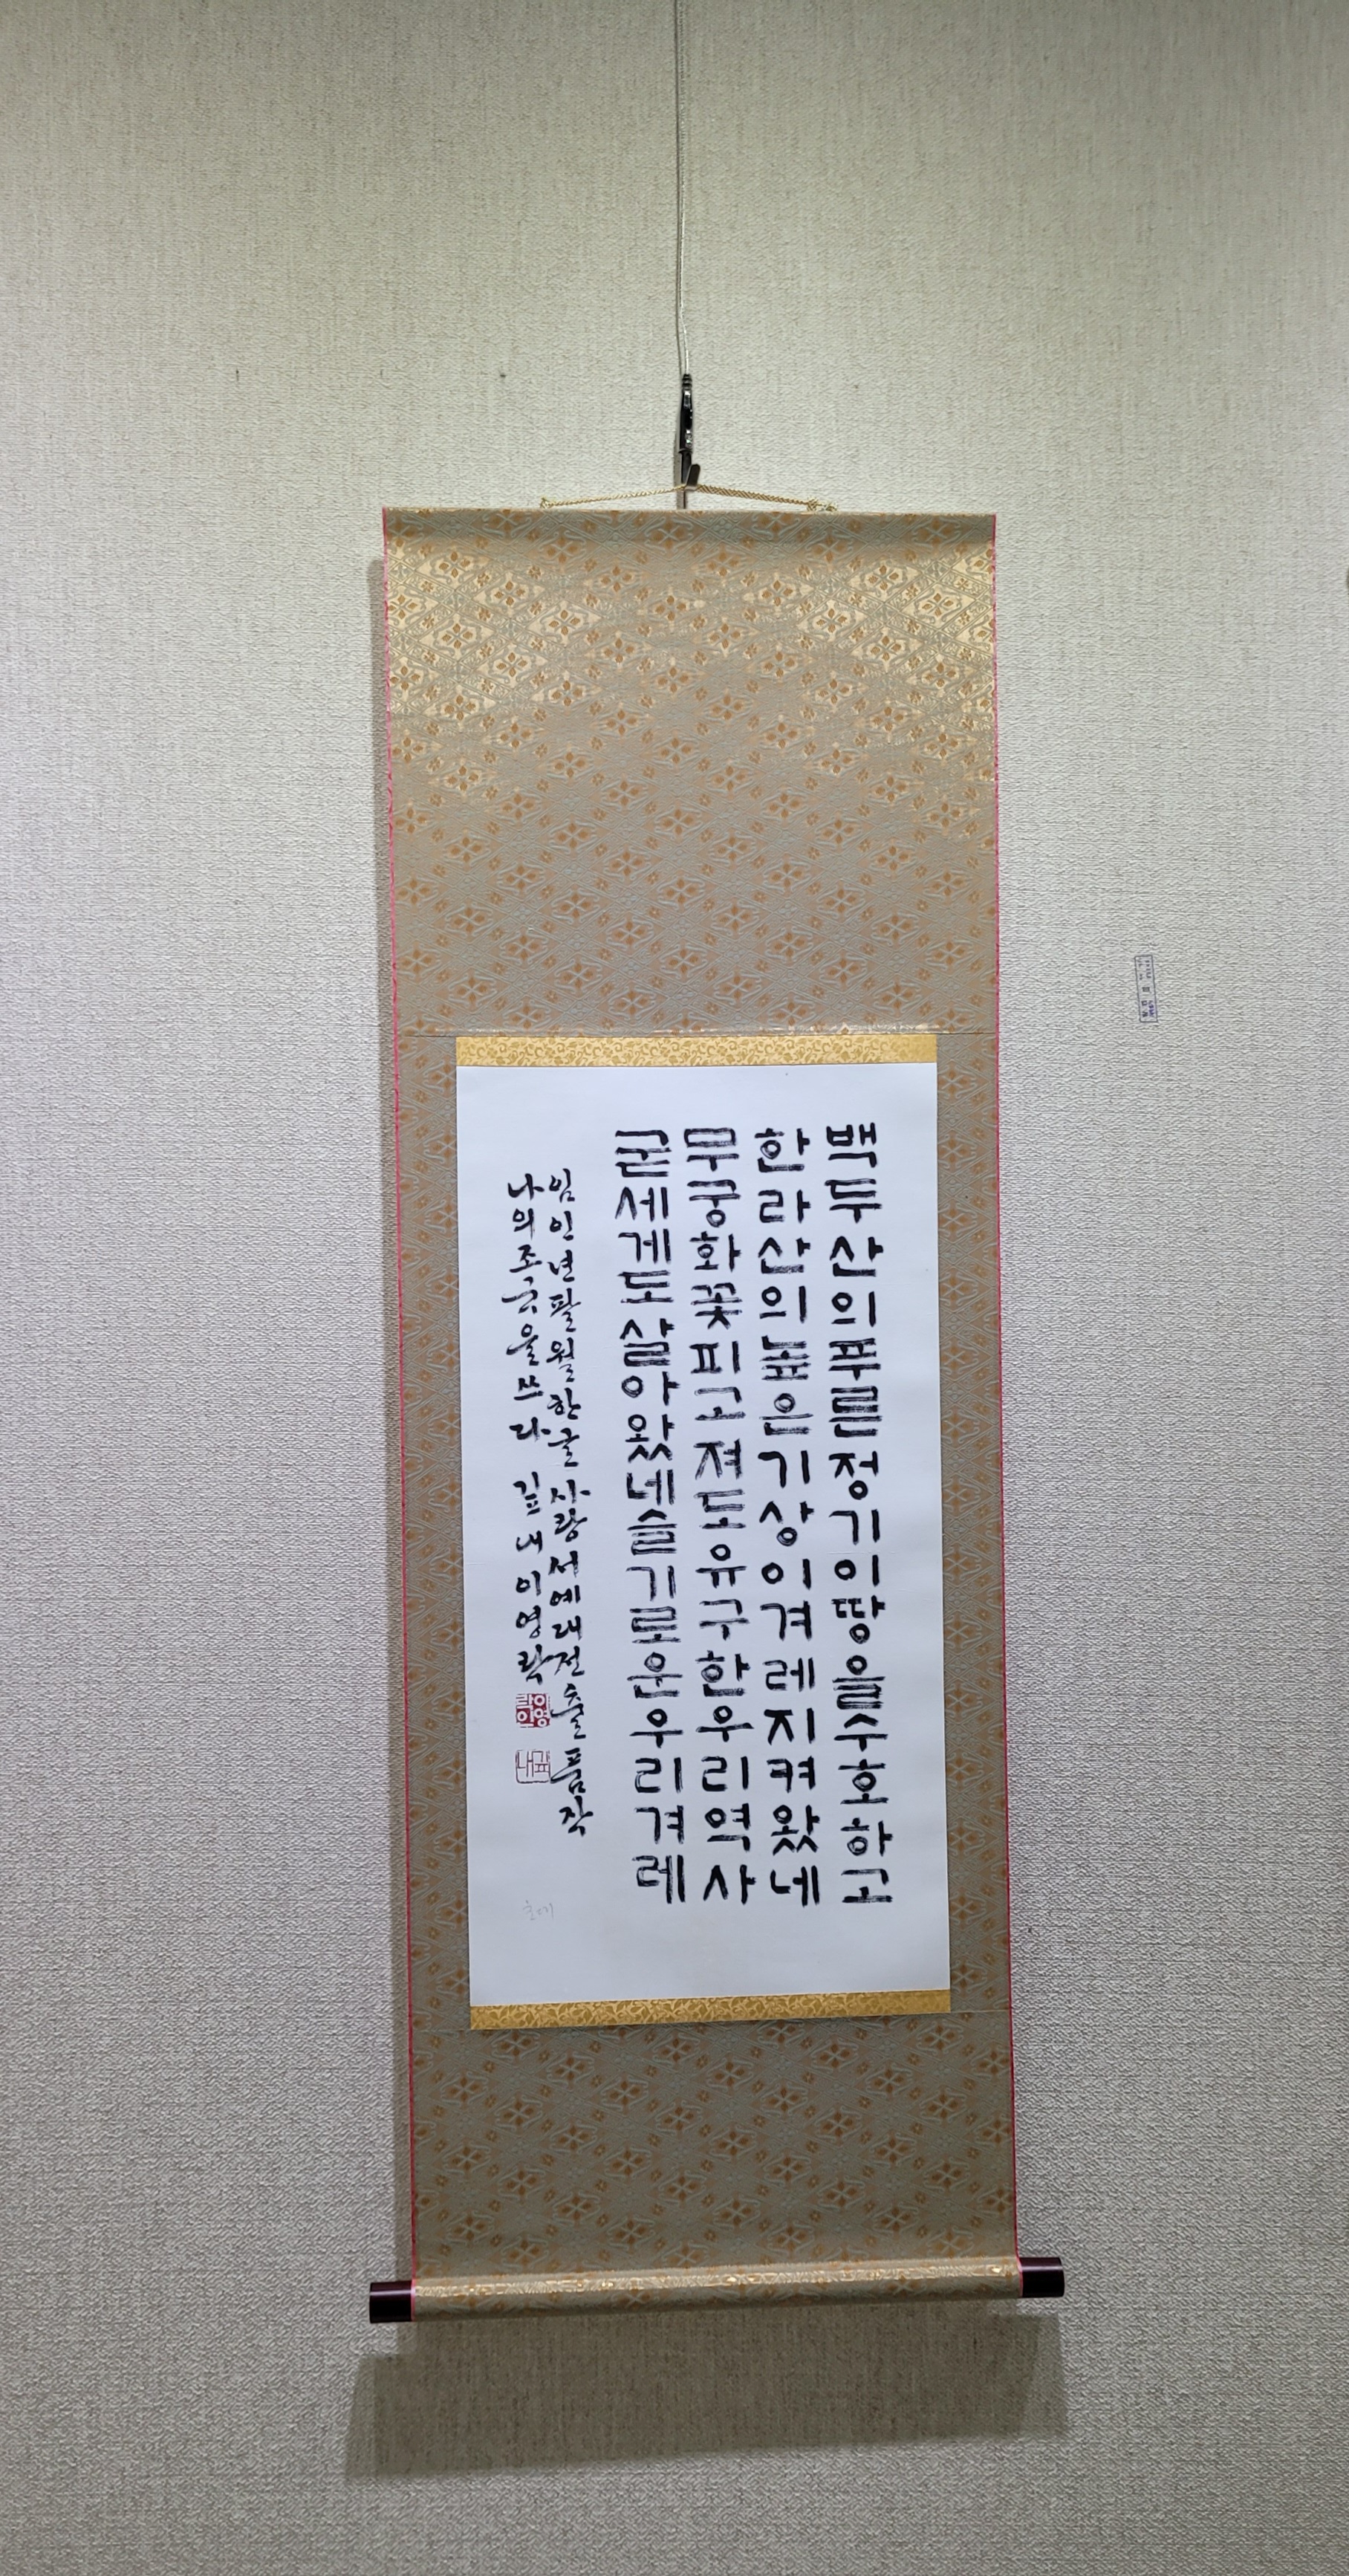 백두산의푸른정기이땅을수호하고
한라산의높은기상이겨레지켜왔네
무궁화꽃피고져도유구한우리역사
굳세게도살아왔네슬기로운우리겨레
임인년팔월한글사랑서예대전출품작
나의조국을쓰다 깊내이영락